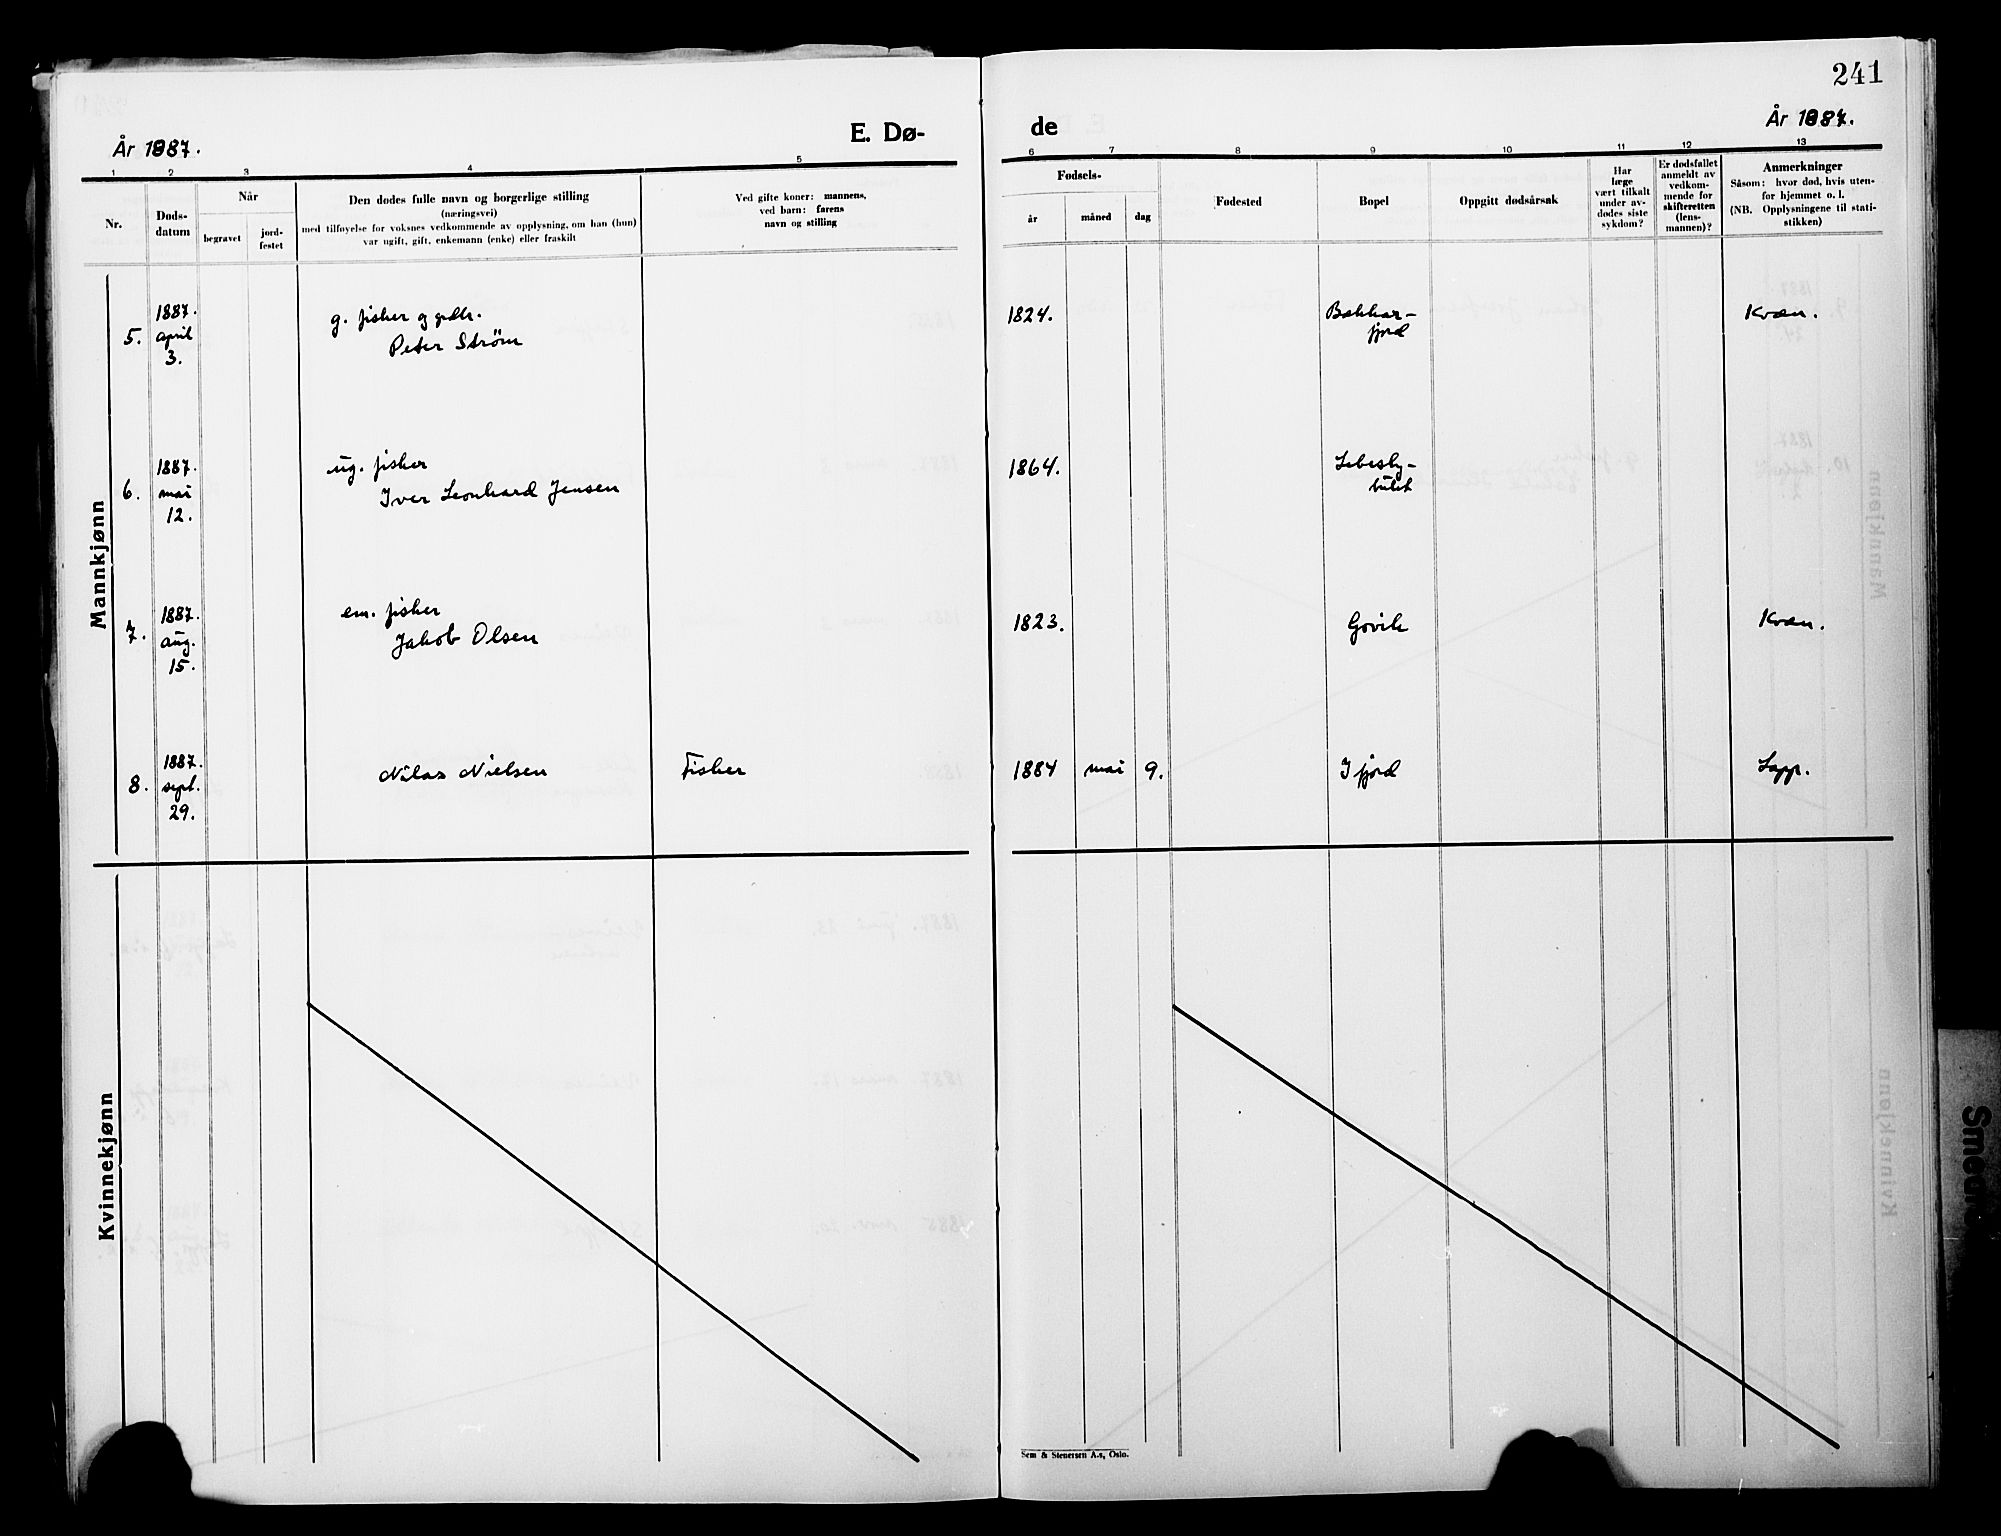 241
År 1887.
E. Dø-
de
År 1887.
1 2 3 4 5
6 7 8 9 10 11 12 13
Nr.
Døds-
datum
Når
begravet
jord-
festet
Den dødes fulle navn og borgerlige stilling
(næringsvei)
med tilføyelse for voksnes vedkommende av opplysning, om han (hun)
var ugift, gift, enkemann (enke) eller fraskilt
Ved gifte koner: mannens,
ved barn: farens
navn og stilling
Fødsels-
år
måned
dag
Fødested
Bopel
Oppgitt dødsårsak
Har
læge
vært tilkalt
under av-
dødes siste
sykdom?
Er dødsfallet
anmeldt av
vedkom-
mende for
skifteretten
(lens-
mannen)?
Anmerkninger
Såsom: hvor død, hvis uten-
for hjemmet o. l.
(NB. Opplysningene til stati-
stikken)
Mannkjønn
5.
1887.
april
3.
g. fisker og gdbr.
Peter Strøm
1824.
Bakkar-
fjord
Kvæn.
6.
1887.
mai
12.
ug. fisker
Iver Leonhard Jensen
1864.
Lebesby-
bukt
7.
1887.
aug.
15.
em. fisker
Jakob Olsen
1823.
Govik
Kvæn.
8.
1887.
sept.
29.
Nilas Nielsen
Fisker
1884 mai 9.
Ifjord
Lapp.
Kvinnekjønn
Sem & Stenersen A.s, Oslo.